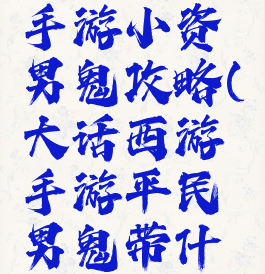 手游小资
男鬼攻略(
大话西游
手游平民
男鬼带什